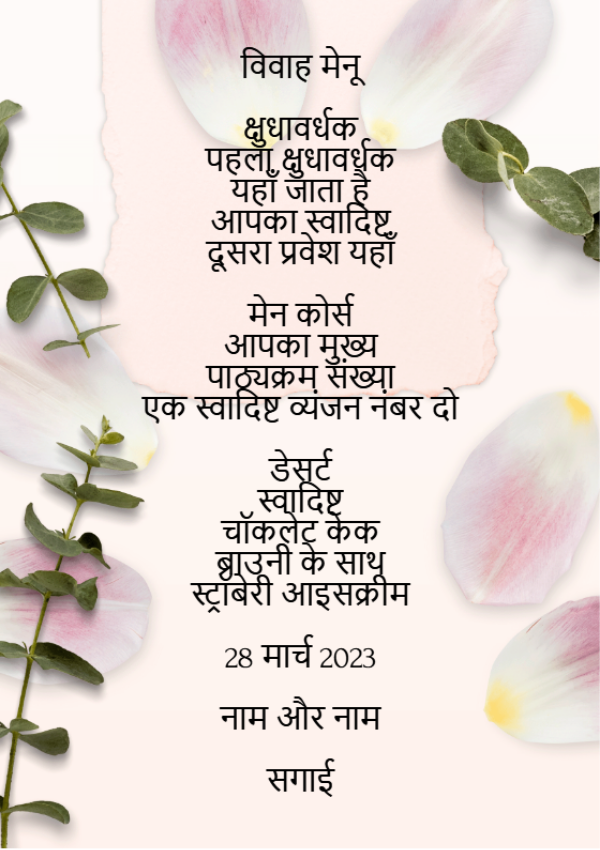 विवाह मेनू
क्षुधावर्धक
पहला क्षुधावर्धक
यहाँ जाता है
आपका स्वादिष्ट
दूसरा प्रवेश यहाँ
मेन कोर्स
आपका मुख्य
पाठ्यक्रम संख्या
एक स्वादिष्ट व्यंजन नंबर दो
डेसर्ट
स्वादिष्ट
चॉकलेट केक
ब्राउनी के साथ
स्ट्रॉबेरी आइसक्रीम
28 मार्च 2023
नाम और नाम
सगाई